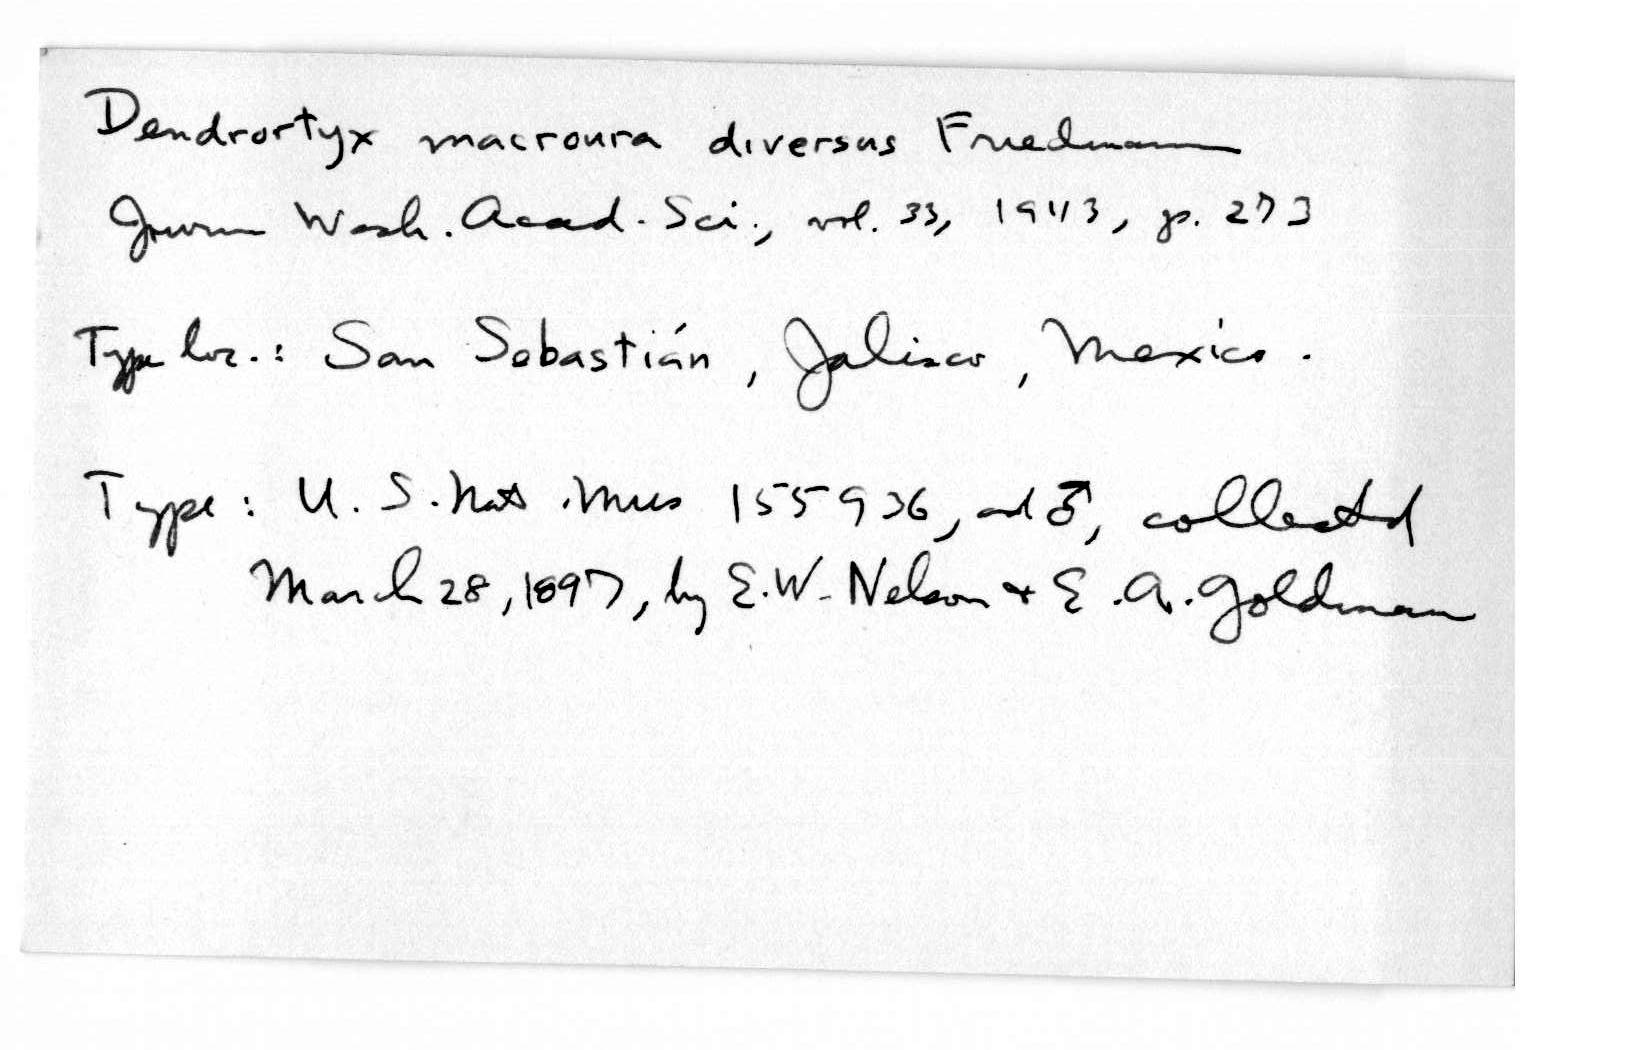 Dendrortyx macroura diversus Friedmann
Journ Wash. Acad. Sci., vol. 33, 1943, p. 273
Type loc.: San Sebastián, Jalisco, Mexico.
Type: U. S. Nat. Mus 155936, ad ♂, collected
March 28, 1897, by E. W. Nelson + E. A. Goldman